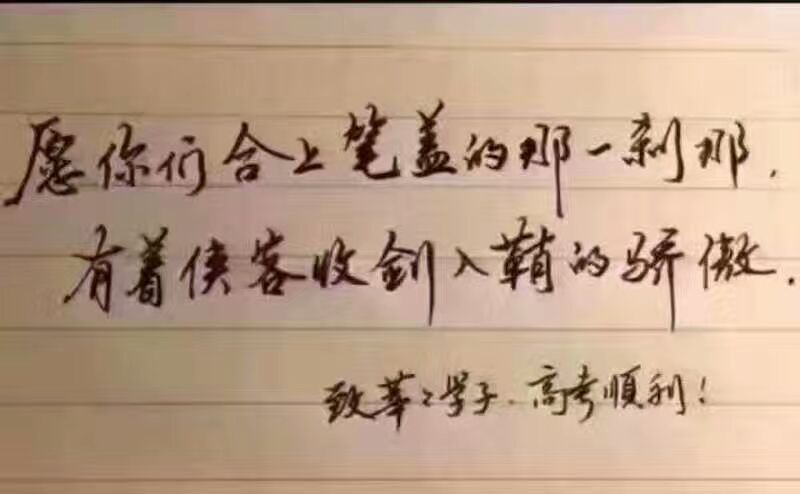 愿你们合上笔盖的那一刹那，
有着侠客收剑入鞘的骄傲．
致莘々学子．高考順利！